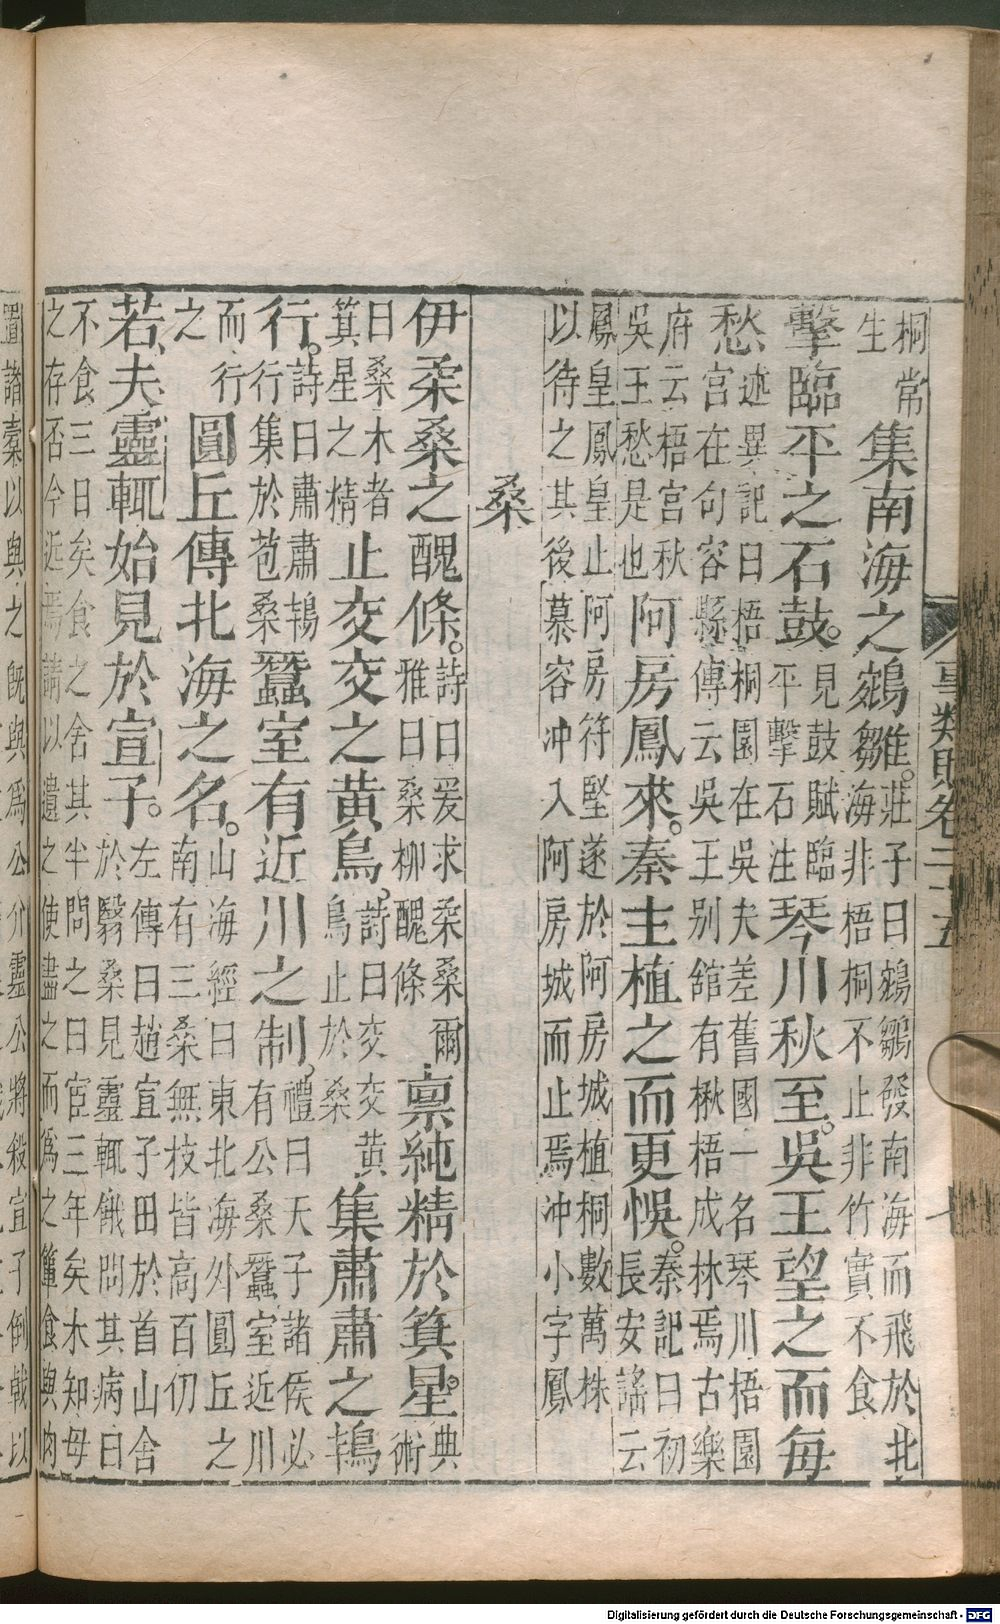 事類賦卷二十五
七
桐常
生
集南海之鵷雛。
莊子曰鵷鶵發南海而飛於北
海非梧桐不止非竹實不食
擊臨平之石鼓。
見鼓賦臨
平擊石注
琴川秋至。吳王望之而每
愁
述異記曰梧桐園在吳夫差舊國一名琴川梧園
宮在句容縣傳云吳王别舘有楸梧成林焉古樂
府云梧宮秋
吳王愁是也
阿房鳳來。秦主植之而更悞。
秦記曰初
長安謠云
鳳皇鳳皇止阿房符堅遂於阿房城植桐數萬株
以待之其後慕容冲入阿房城而止焉冲小字鳳
桑
伊柔桑之醜條。
詩曰爰求柔桑爾
雅曰桑柳醜條
稟純精於箕星。
典
術
曰桑木者
箕星之精
止交交之黄鳥。
詩曰交交黄
鳥止於桑
集肅肅之鴇
行。
詩曰肅肅鴇
行集於苞桑
蠶室有近川之制。
禮曰天子諸侯必
有公桑蠶室近川
而行
之
圓丘傳北海之名。
山海經曰東北海外圓丘之
南有三桑無枝皆高百仞
若夫靈輒始見於宣子。
左傳曰趙宣子田於首山舍
於翳桑見靈輒餓問其病曰
不食三日矣食之舍其半問之曰宦三年矣未知母
之存否今近焉請以遺之使盡之而爲之簞食與肉
置諸橐以與之既與爲公介靈公將殺宣子倒戟以
Digitalisierung gefördert durch die Deutsche Forschungsgemeinschaft - DFG